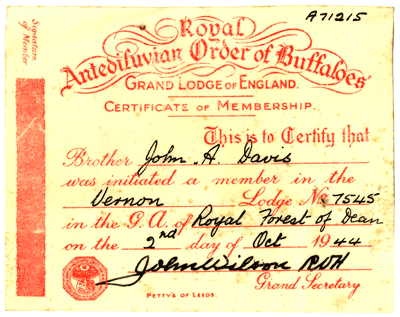 A71215
Signature of Member
Royal
Antediluvian Order of Buffaloes
GRAND LODGE OF ENGLAND.
CERTIFICATE OF MEMBERSHIP.
This is to Certify that
Brother John A. Davis
was initiated a member in the
Vernon Lodge No 7545
in the G. A. of Royal Forest of Dean
on the 2nd day of Oct 1944
John Wilson ROH
Grand Secretary
PETTY'S OF LEEDS.